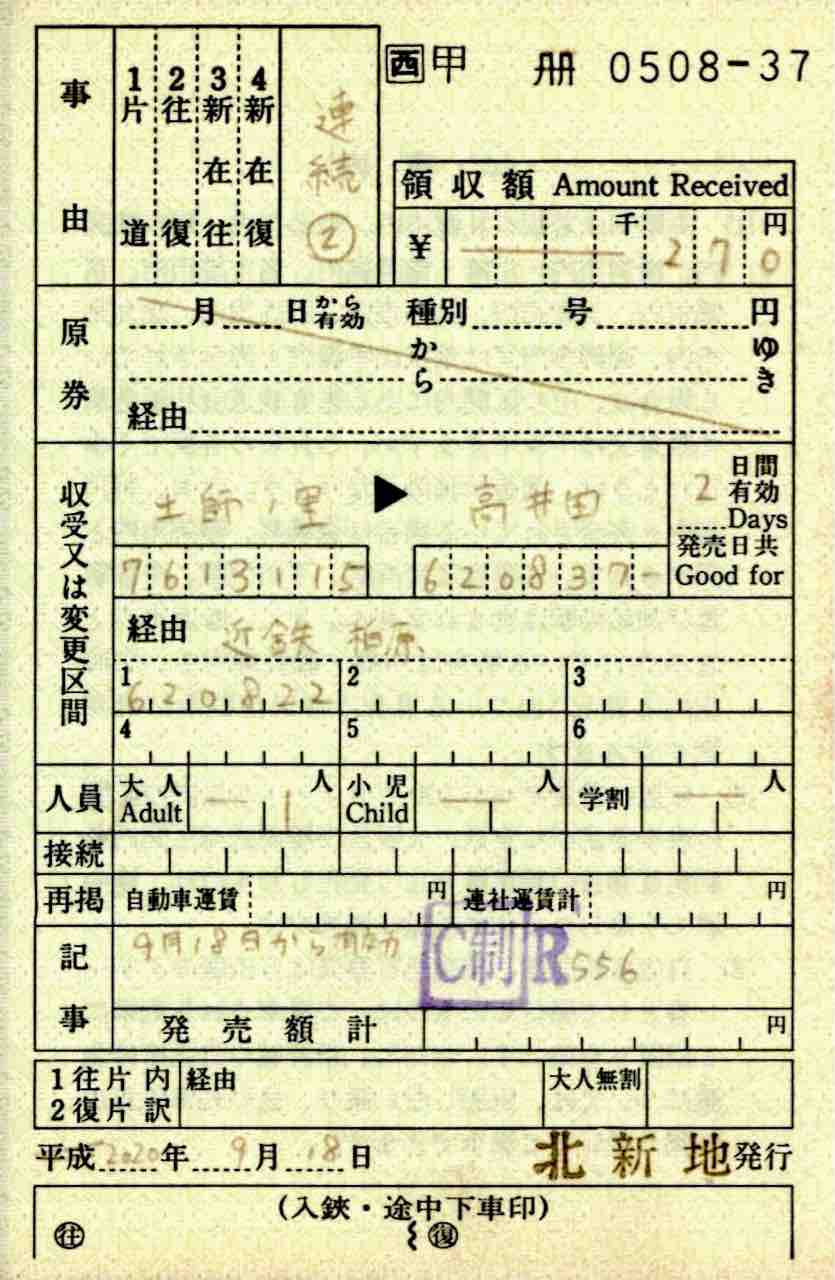 西 甲 冊 0508-37
事由
1片道
2往復
3新在往
4新在復
連続②
領収額 Amount Received
¥ 千 270 円
原券
月 日から有効 種別 号 円
から ゆき
経由
収受又は変更区間
土師ノ里 ▶ 高井田
2 日間有効 Days
発売日共 Good for
7613115 620837-
経由 近鉄 柏原
1 620822 2 3
4 5 6
人員 大人 Adult 1 人 小児 Child 人 学割 人
接続
再掲 自動車運賃 円 連社運賃計 円
記事
9月18日から有効 C制 R 556
発売額計 円
1往片内 経由 大人無割
2復片訳
平成 2020 年 9 月 18 日 北新地 発行
(入鋏・途中下車印)
往 復